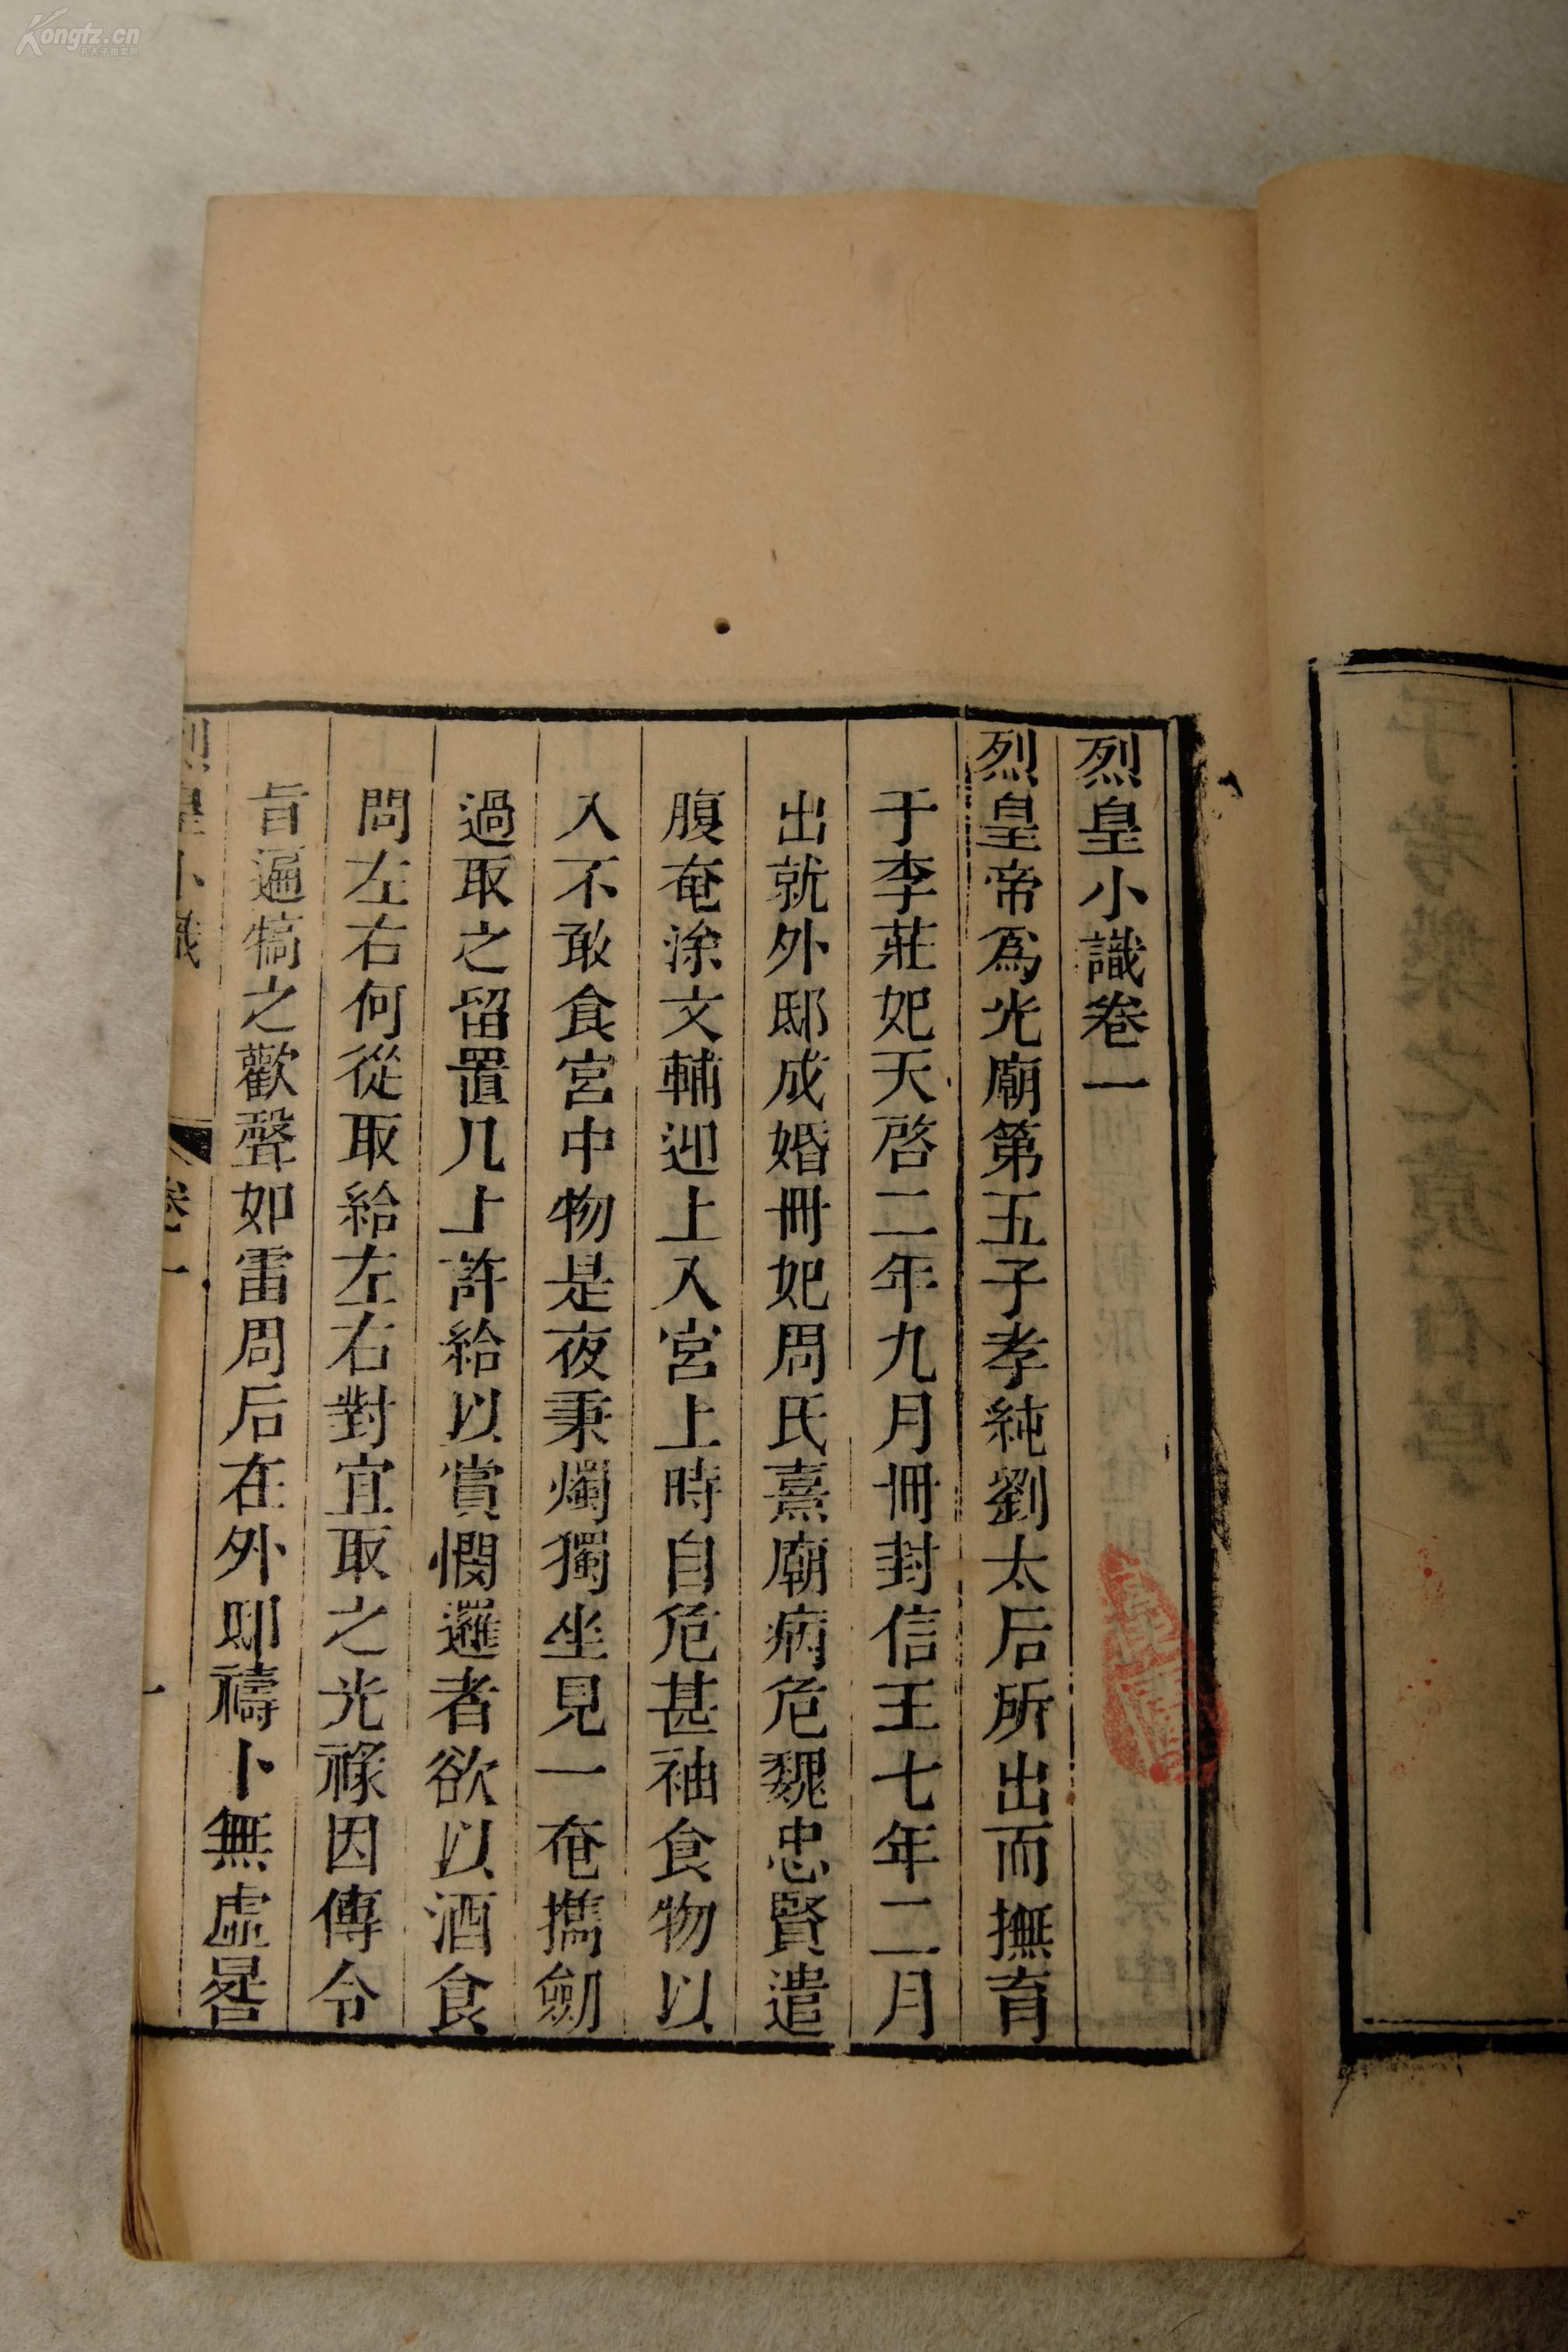 烈皇小識卷一
烈皇帝爲光廟第五子孝純劉太后所出而撫育
于李莊妃天啓二年九月冊封信王七年二月
出就外邸成婚冊妃周氏熹廟病危魏忠賢遣
腹奄涂文輔迎上入宮上時自危甚袖食物以
入不敢食宮中物是夜秉燭獨坐見一奄攜劍
過取之留置几上許給以賞憫邏者欲以酒食
問左右何從取給左右對宜取之光祿因傳令
旨遍犒之歡聲如雷周后在外邸禱卜無虛晷
烈皇小識
卷一
一
Kongfz.cn